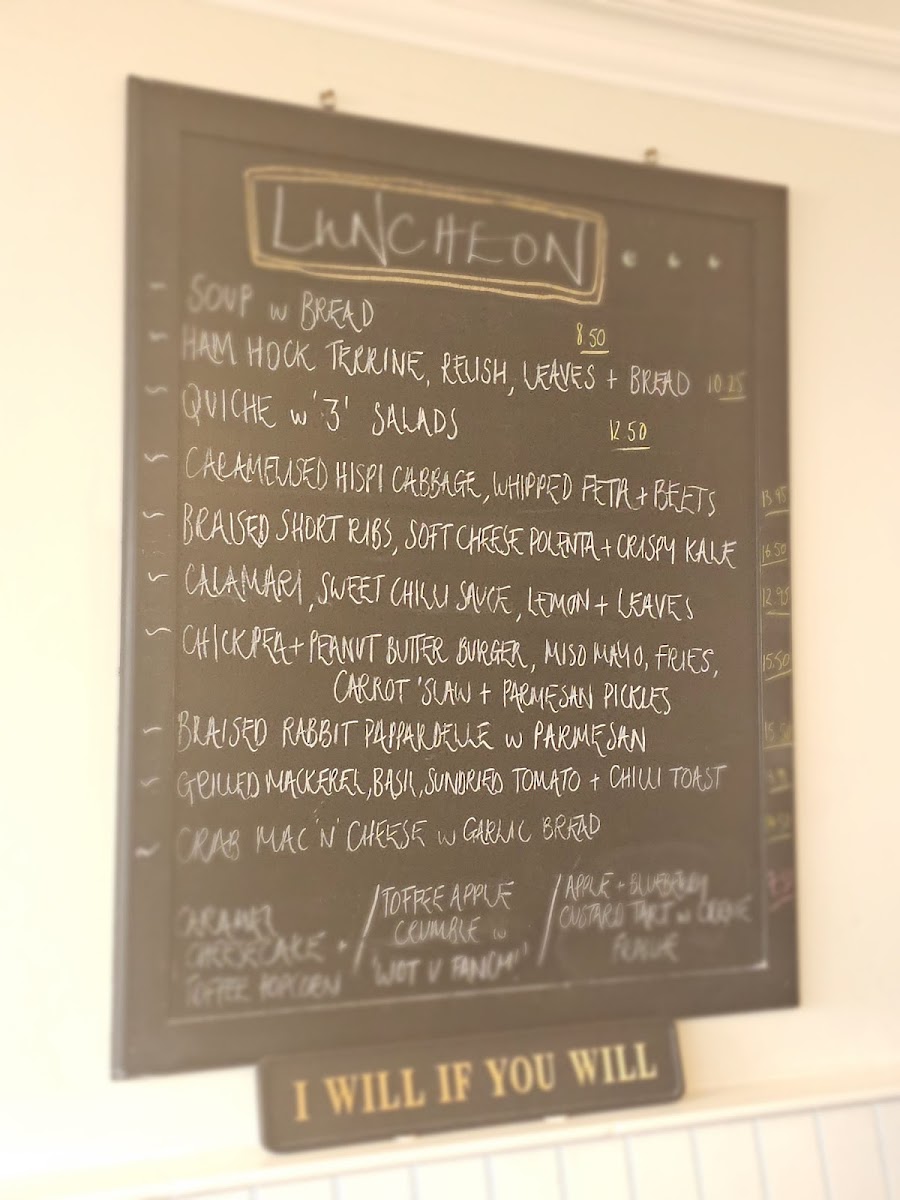 LUNCHEON ...
- SOUP w BREAD 8.50
~ HAM HOCK TERRINE, RELISH, LEAVES + BREAD 10.25
~ QUICHE w '3' SALADS 12.50
~ CARAMELISED HISPI CABBAGE, WHIPPED FETA + BEETS 13.95
~ BRAISED SHORT RIBS, SOFT CHEESE POLENTA + CRISPY KALE 16.50
~ CALAMARI, SWEET CHILLI SAUCE, LEMON + LEAVES 12.95
~ CHICKPEA + PEANUT BUTTER BURGER, MISO MAYO, FRIES, 15.50
CARROT 'SLAW + PARMESAN PICKLES
~ BRAISED RABBIT PAPPARDELLE w PARMESAN
~ GRILLED MACKEREL, BASIL, SUNDRIED TOMATO + CHILLI TOAST
~ CRAB MAC 'N' CHEESE w GARLIC BREAD
CARAMEL
CHEESECAKE +
TOFFEE POPCORN
/ TOFFEE APPLE
CRUMBLE w
'WOT U FANCY!'
/ APPLE + BLUEBERRY
CUSTARD TART w CRÈME
FRAICHE
I WILL IF YOU WILL